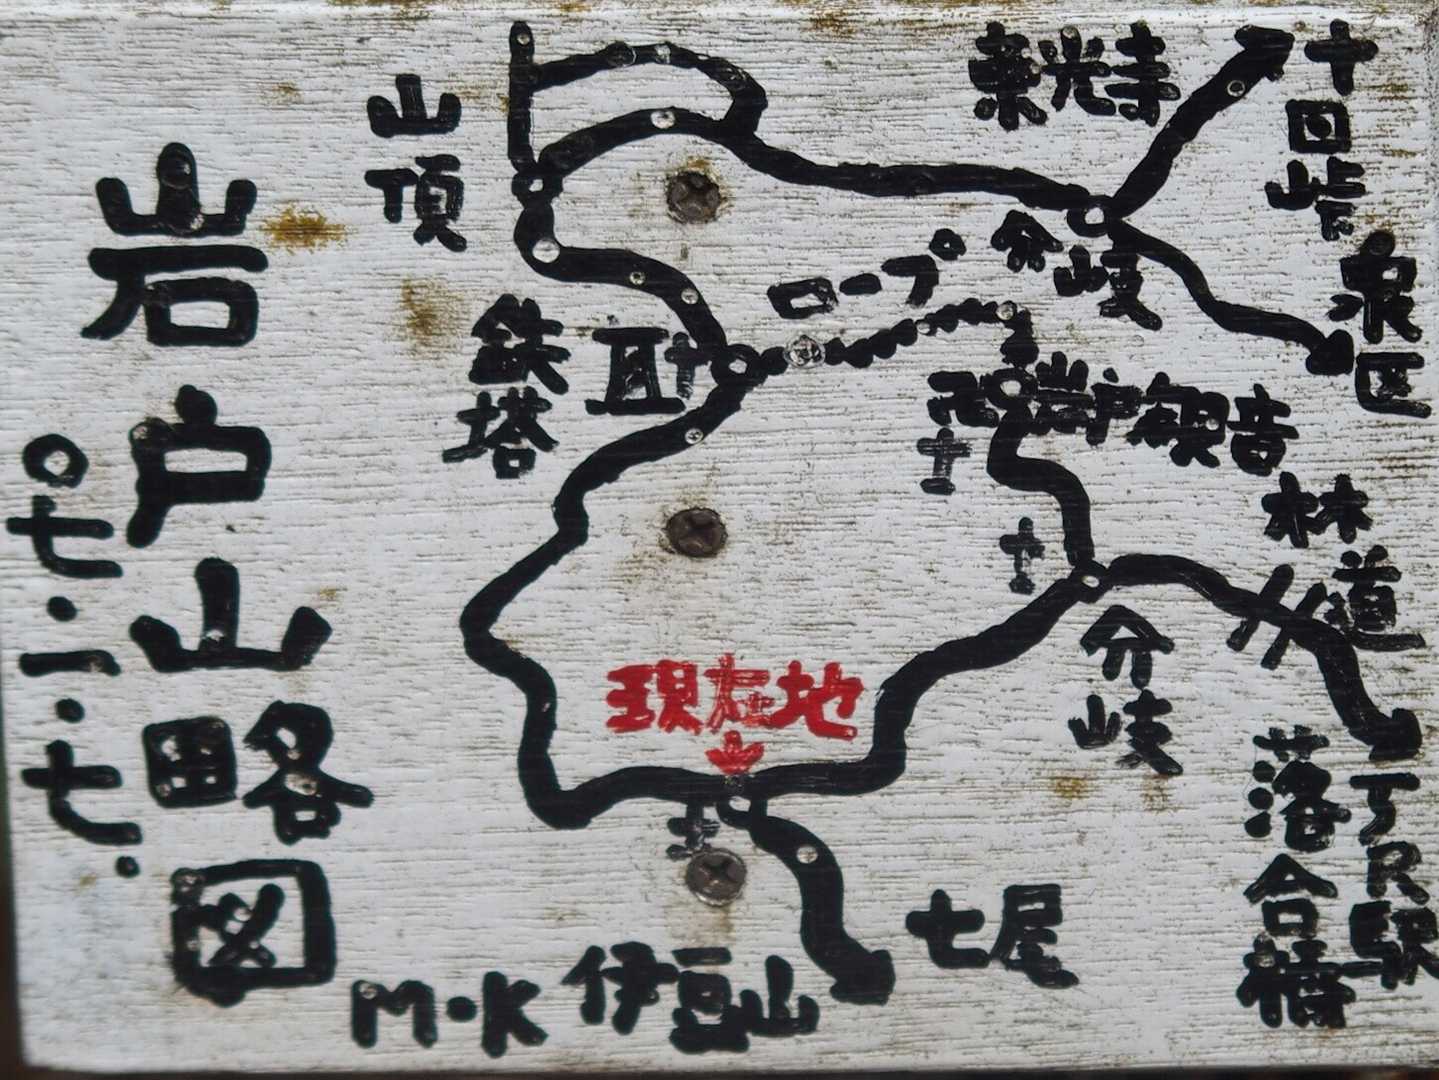 岩戸山略図
〇七・一・七・
山頂
鉄塔
ロープ
来光寺
十国峠
分岐
泉区
岩戸観音
林道
分岐
落合橋
JR駅
現在地
七尾
伊豆山
M・K